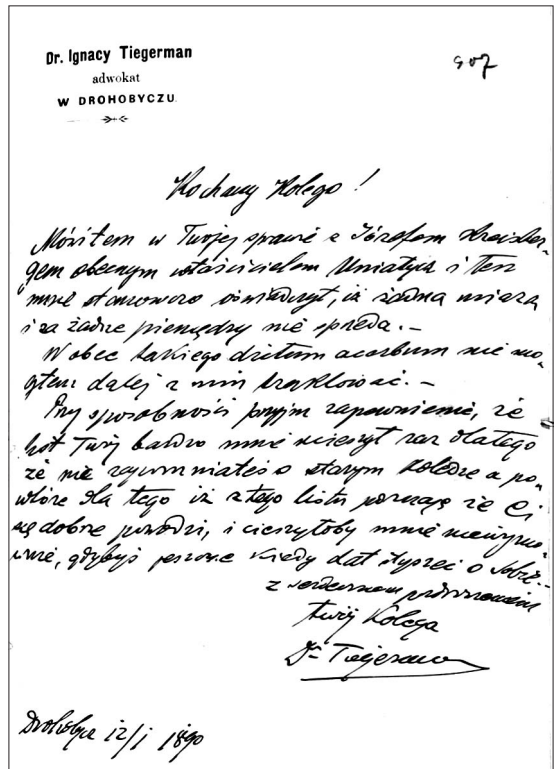 Dr. Ignacy Tiegerman
adwokat
W DROHOBYCZU.
907
Kochany Kolego!
Mówiłem w Twojej sprawie z Józefem Kreisber-
giem obecnym właścicielem Uniatycz i ten
mnie stanowczo oświadczył, iż żadną miarą
i za żadne pieniądze nie sprzeda. —
Wobec takiego dictum acerbum nie mo-
głem dalej z nim traktować. —
Przy sposobności przyjm zapewnienie, że
list Twój bardzo mnie ucieszył raz dlatego
że nie zapomniałeś o starym koledze a po-
wtóre dla tego iż z tego listu poznaję że Ci
się dobrze powodzi, i cieszyłoby mnie niewymo-
wnie, gdybyś jeszcze kiedy dał słyszeć o sobie. —
z serdecznem pozdrowieniem
twój kolega
Dr Tiegerman
Drohobycz 12/1 1890